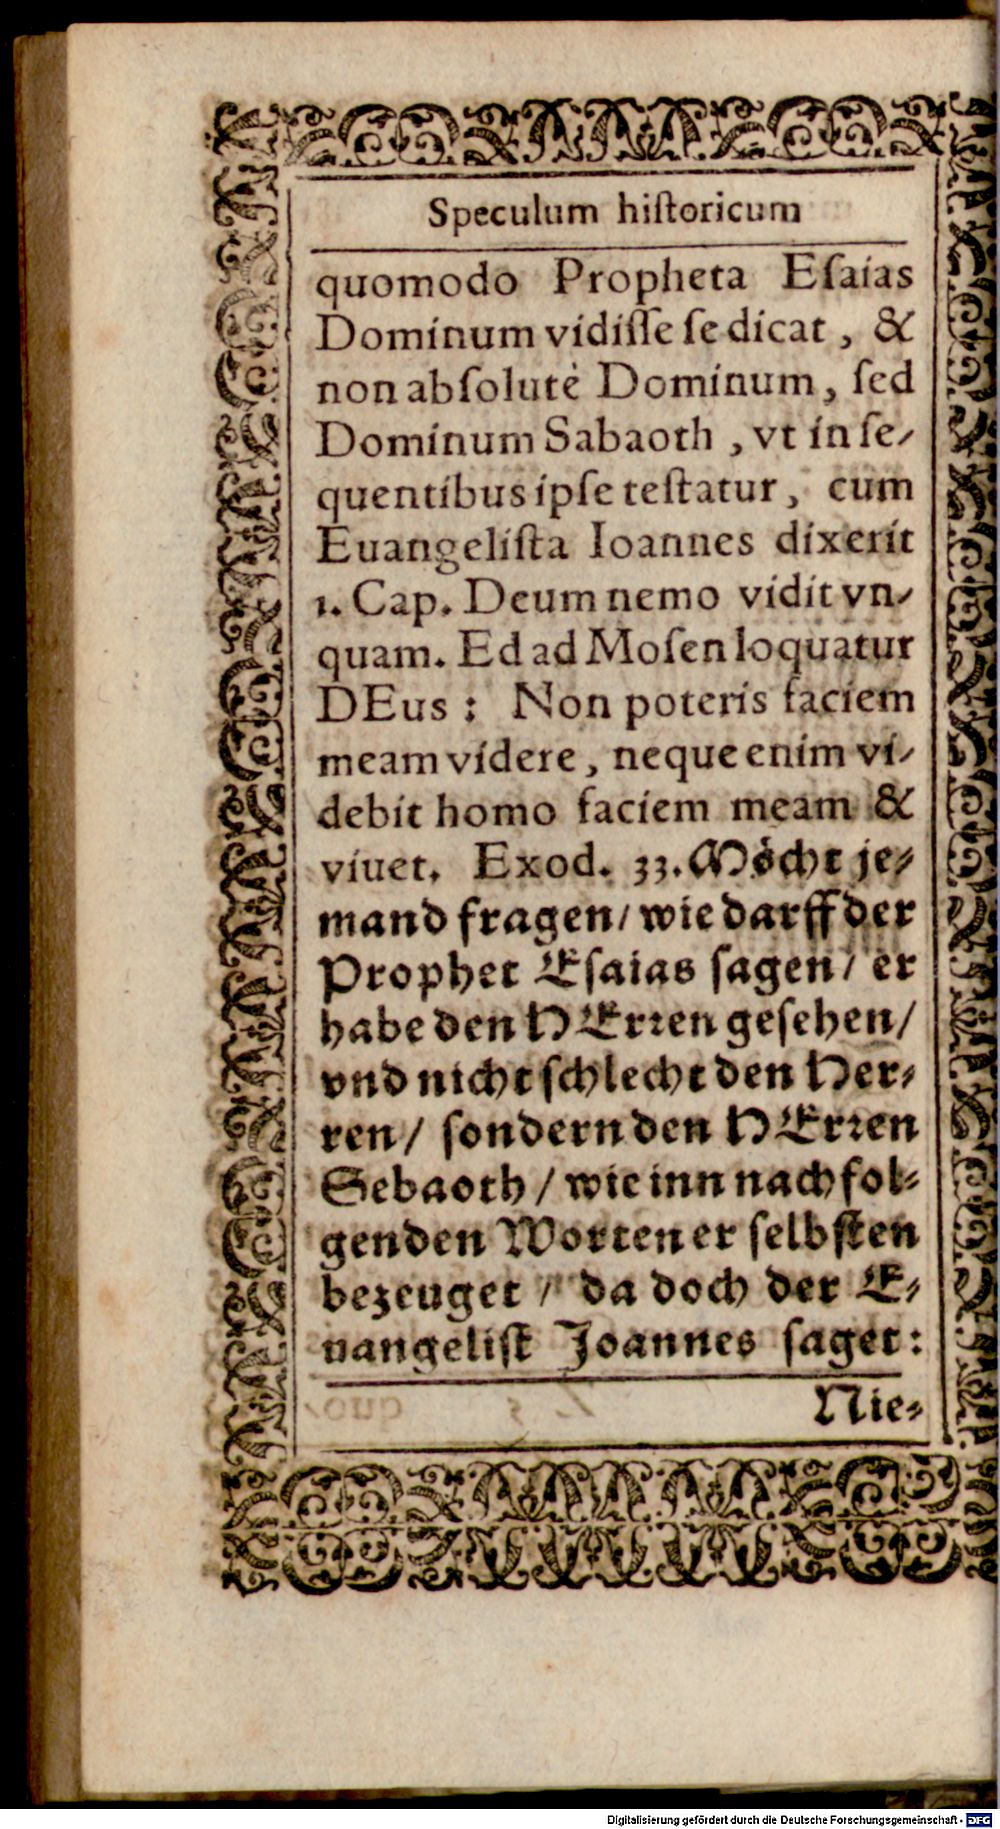 Speculum hiſtoricum
quomodo Propheta Eſaias
Dominum vidiſſe ſe dicat, &
non abſolutè Dominum, ſed
Dominum Sabaoth, vt in ſe-
quentibus ipſe teſtatur, cum
Euangeliſta Ioannes dixerit
1. Cap. Deum nemo vidit vn-
quam. Ed ad Moſen loquatur
DEus: Non poteris faciem
meam videre, neque enim vi-
debit homo faciem meam &
viuet. Exod. 33. Möcht je-
mand fragen/ wie darff der
Prophet Eſaias ſagen/ er
habe den HErꝛen geſehen/
vnd nicht ſchlecht den Her-
ren/ ſondern den HErꝛen
Sebaoth/ wie inn nachfol-
genden Worten er ſelbſten
bezeuget/ da doch der E-
uangeliſt Joannes ſaget:
Nie-
Digitalisierung gefördert durch die Deutsche Forschungsgemeinschaft - DFG